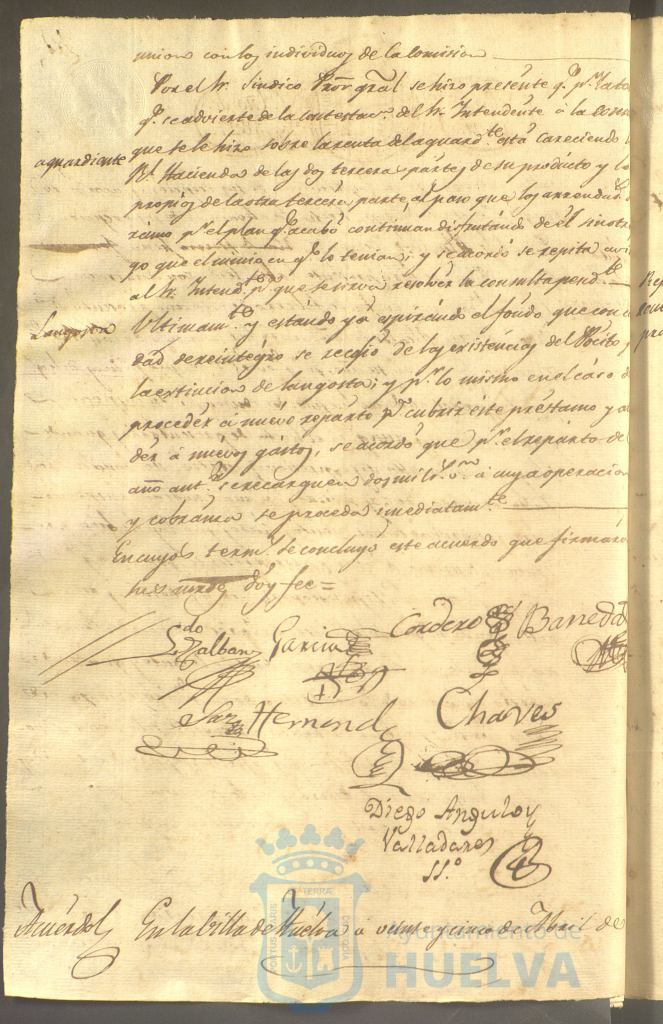 union con los individuos de la Comision
Por el Sr. Sindico Pror. gral se hizo presente q.e p.r
q.e se advierte de la contestac.n del Sr. Intendente á la
que se le hizo sobre la renta del aguard.te está careciendo
aguardiente
R.l Hacienda de las dos terceras partes de su producto y
propios de la otra tercera parte, al paso que los
p.r el plan q.e acabó continuan disfrutando de él sin otro
que el mismo en q.e lo tenian; y se acordó se repita
al Sr. Intend.te p.a que se sirva resolver la consulta pend.te
Langosta
Ultimam.te y estándo ya espirándo el fondo que con
dad de reintegro se recojió de las existencias del Pósito
la extincion de langosta; y p.r lo mismo en el cáso
proceder á nuevo repárto p.a cubrir éste préstamo y
der á nuevos gástos, se acordó que p.r el repárto de
año ant.r se recarguen dos mil r.s v.n á cuya operacion
y cobranza se proceda imediatam.te
En cuyos term.s se concluyó este acuerdo que firmáron
sus mrds doy fee=
L.do Balban
Garcia
Cordero
Baneda
Saz
Hernand
Chaves
Diego Angulo y
Valladares
SS.o
Acuérdo
En la Villa de Huélva á veinte y cinco de Abril de
Ayuntamiento de
HUELVA